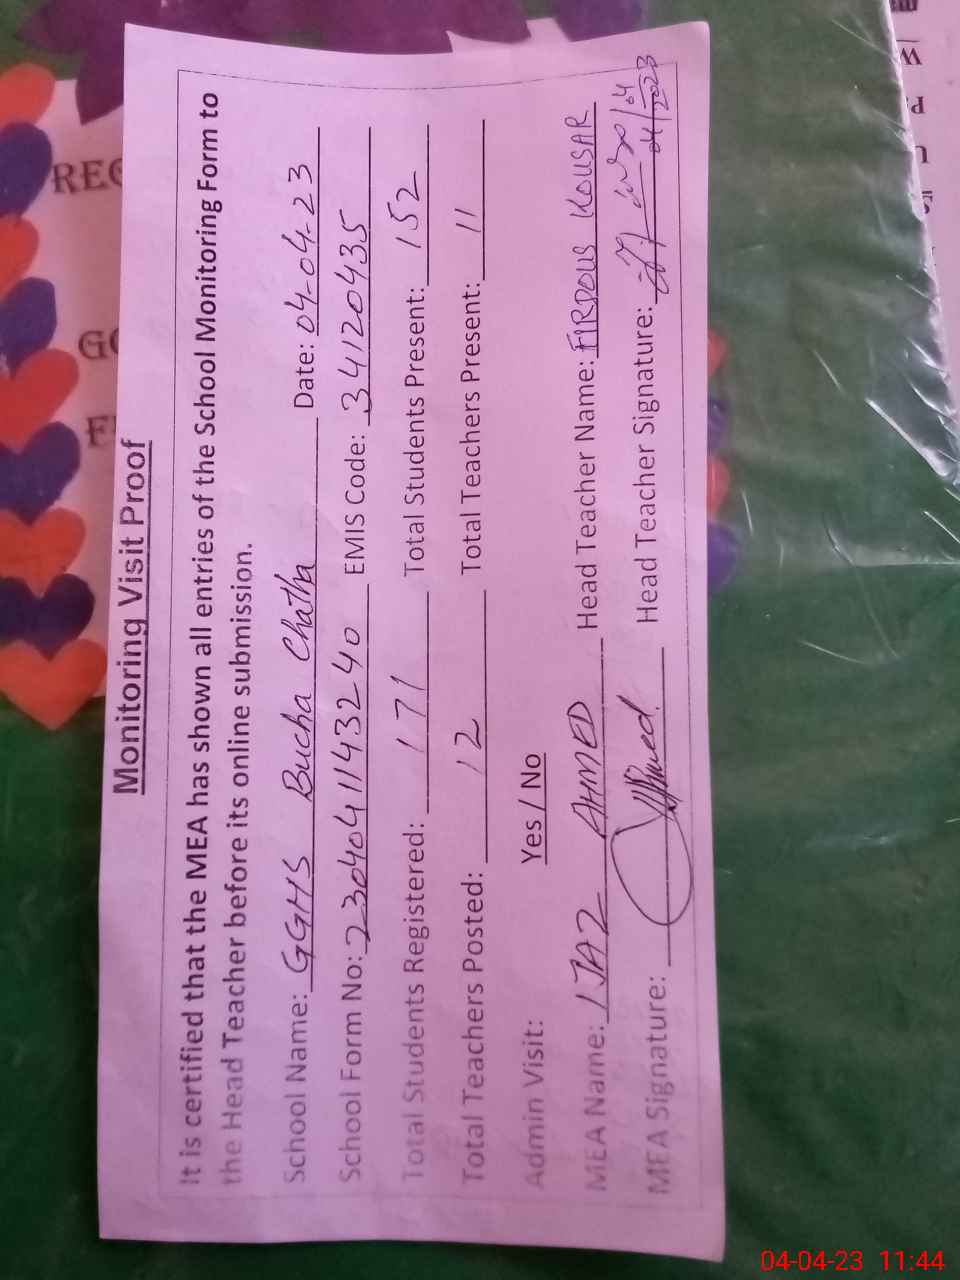 Monitoring Visit Proof
It is certified that the MEA has shown all entries of the School Monitoring Form to
the Head Teacher before its online submission.
School Name: GGHS Bucha Chatha Date: 04-04-23
School Form No: 23040411143240 EMIS Code: 34120435
Total Students Registered: 171 Total Students Present: 152
Total Teachers Posted: 12 Total Teachers Present: 11
Admin Visit: Yes / No
MEA Name: IJAZ AHMED Head Teacher Name: FIRDOUS KOUSAR
MEA Signature: Ahmed. Head Teacher Signature: 04/04/2023
REG
GO
04-04-23 11:44